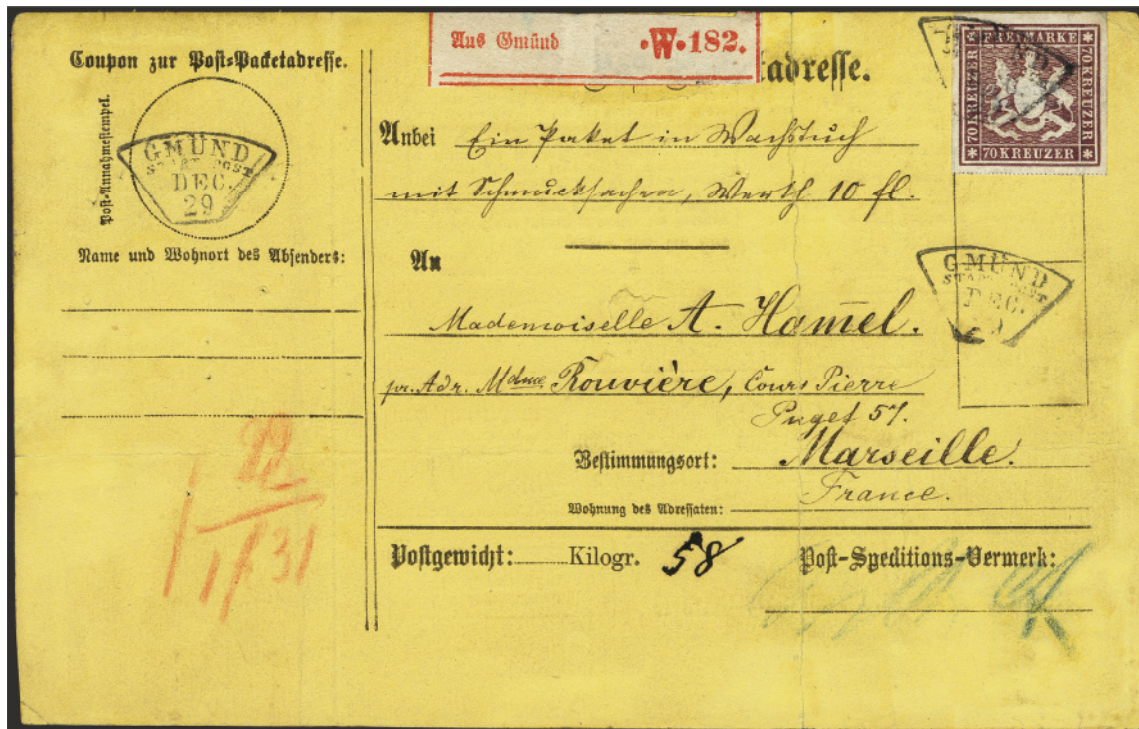 Coupon zur Post=Packetadresse.
Post=Annahmestempel.
GMÜND
STADT POST
DEC.
29
Name und Wohnort des Absenders:
22
Aus Gmünd ·W·182.
tadresse.
FREIMARKE
70 KREUZER
70 KREUZER
70 KREUZER
Anbei Ein Paket in Wachstuch
mit Schmucksachen, Werth 10 fl.
An
GMÜND
STADT POST
DEC.
Mademoiselle A. Hamel.
pr. Adr. Mdme Rouvière, Cours Pierre
Puget 57.
Bestimmungsort: Marseille.
France.
Wohnung des Adressaten:
Postgewicht: Kilogr. 58
Post-Speditions-Vermerk: